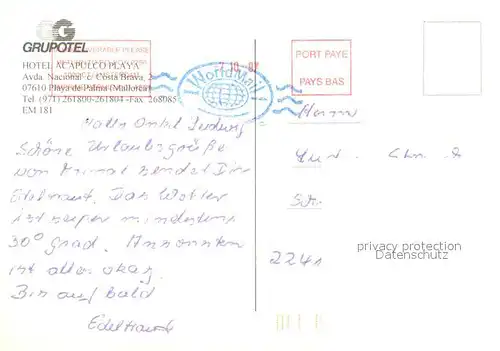 GRUPOTEL
HOTEL ACAPULCO PLAYA
Avda. Nacional c. Costa Brava, 2
07610 Playa de Palma (Mallorca)
Tel (971) 261800-261804 - Fax 268085
EM 181
PORT PAYE
PAYS BAS
WorldMail
Hallo Onkel Ludwig
Schöne Urlaubsgrüße
von sendet Dir
Edeltraut. Das Wetter
ist super mindestens
30° Grad. Ansonsten
ist alles okay.
Bis auf bald
Edeltraut
Herrn
Str.
2241
privacy protection
Datenschutz